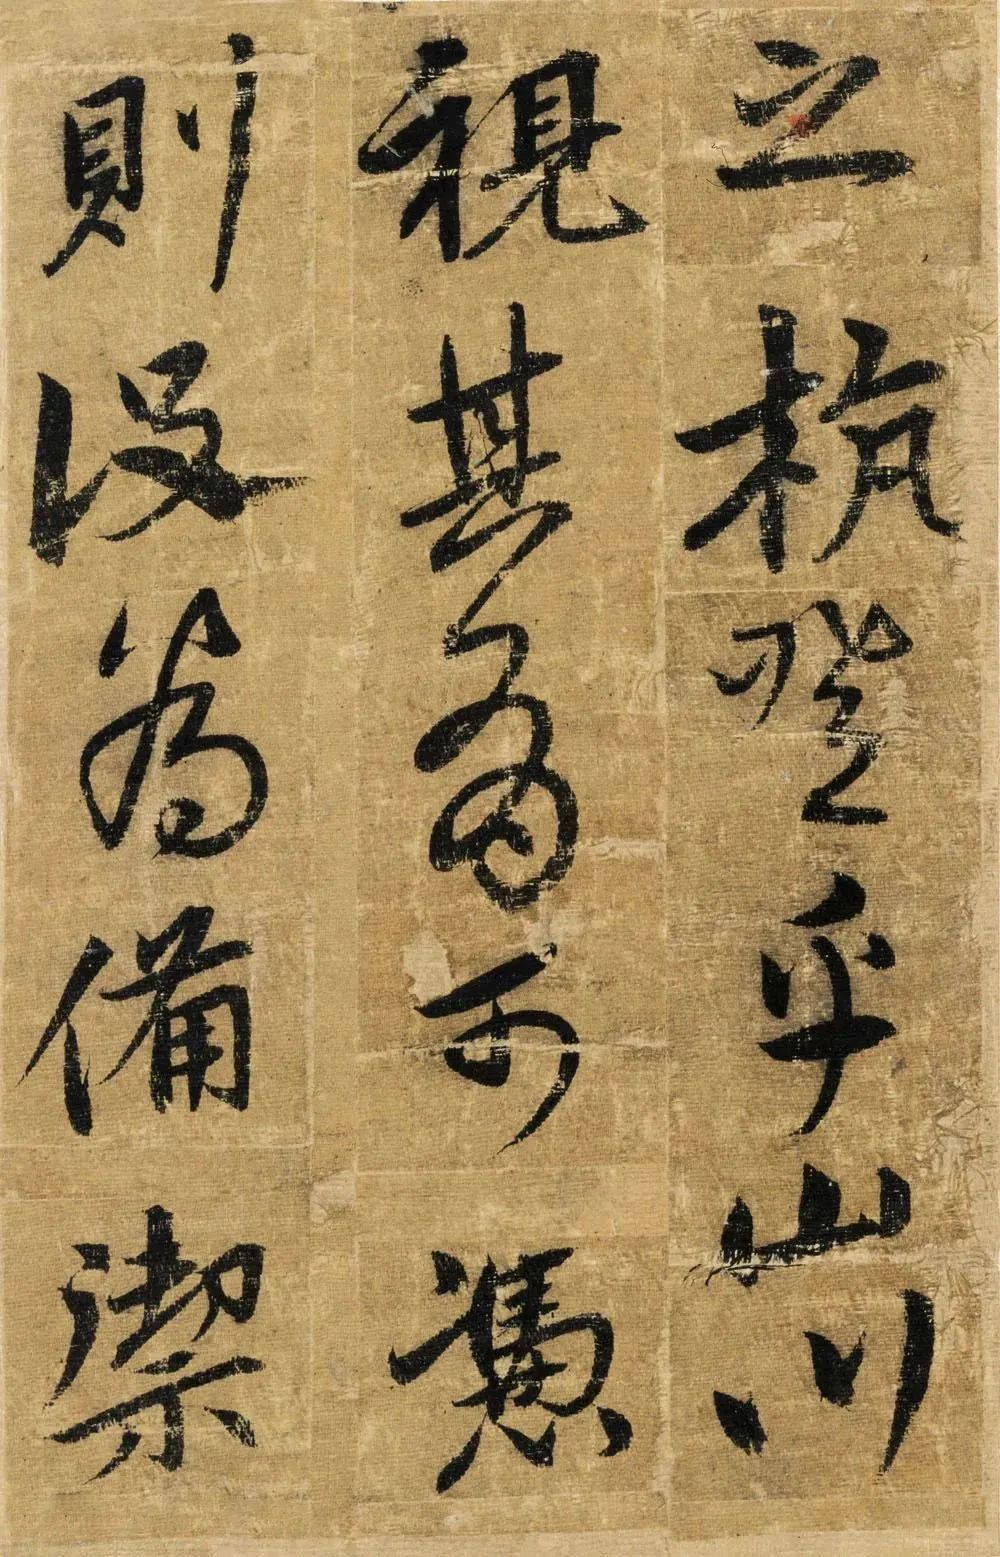 之杭登乎山川
視其高可憑
則設為備禦